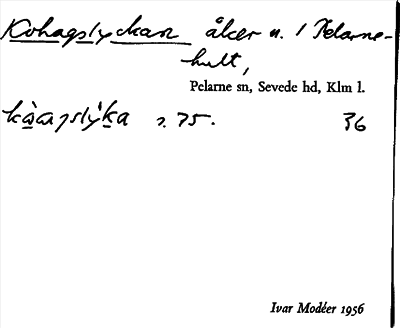 Kohagslyckan åker n. 1 Pelarne-
hult,
Pelarne sn, Sevede hd, Klm l.
s. 75. 36
Ivar Modéer 1956